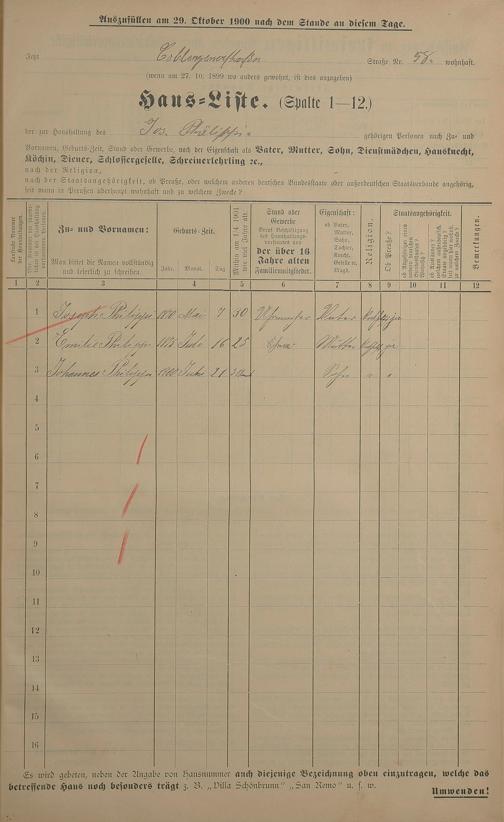 Auszufüllen am 29. Oktober 1900 nach dem Stande an diesem Tage.
Jetzt Straße Nr. 58. wohnhaft.
(wenn am 27. 10. 1899 wo anders gewohnt, ist dies anzugeben)
Haus=Liste. (Spalte 1—12.)
der zur Haushaltung des Jos. Philippi gehörigen Personen nach Zu= und
Vornamen, Geburts=Zeit, Stand oder Gewerbe, nach der Eigenschaft als Vater, Mutter, Sohn, Dienstmädchen, Hausknecht,
Köchin, Diener, Schlossergeselle, Schreinerlehrling ec.,
nach der Religion,
nach der Staatsangehörigkeit, ob Preuße, oder welchem anderen deutschen Bundesstaate oder außerdeutschen Staatsverbande angehörig,
seit wann in Preußen überhaupt wohnhaft und zu welchem Zwecke?
Zu= und Vornamen:
Man bittet die Namen vollständig und leserlich zu schreiben.
Geburts=Zeit.
Jahr. Monat. Tag
Mithin am 1./4. 1901 wie viel Jahre alt.
Stand oder Gewerbe
der über 16 Jahre alten Familienmitglieder.
Eigenschaft:
ob Vater, Mutter, Sohn, Tochter, Knecht, Geselle u. Magd.
Religion.
Ob Preuße?
Staatsangehörigkeit.
Bemerkungen.
1 2 3 4 5 6 7 8 9 10 11 12
1 Joseph Philippi Mai 7 30 Vater ja
2 Emilie Philippi 16 25 Mutter ja
3 Johannes Philippi 1900 21 Sohn " "
4
5
6
7
8
9
10
11
12
13
14
15
16
Es wird gebeten, neben der Angabe von Hausnummer auch diejenige Bezeichnung oben einzutragen, welche das
betreffende Haus noch besonders trägt z. B. „Villa Schönbrunn" „San Remo" u. s. w.
Umwenden!